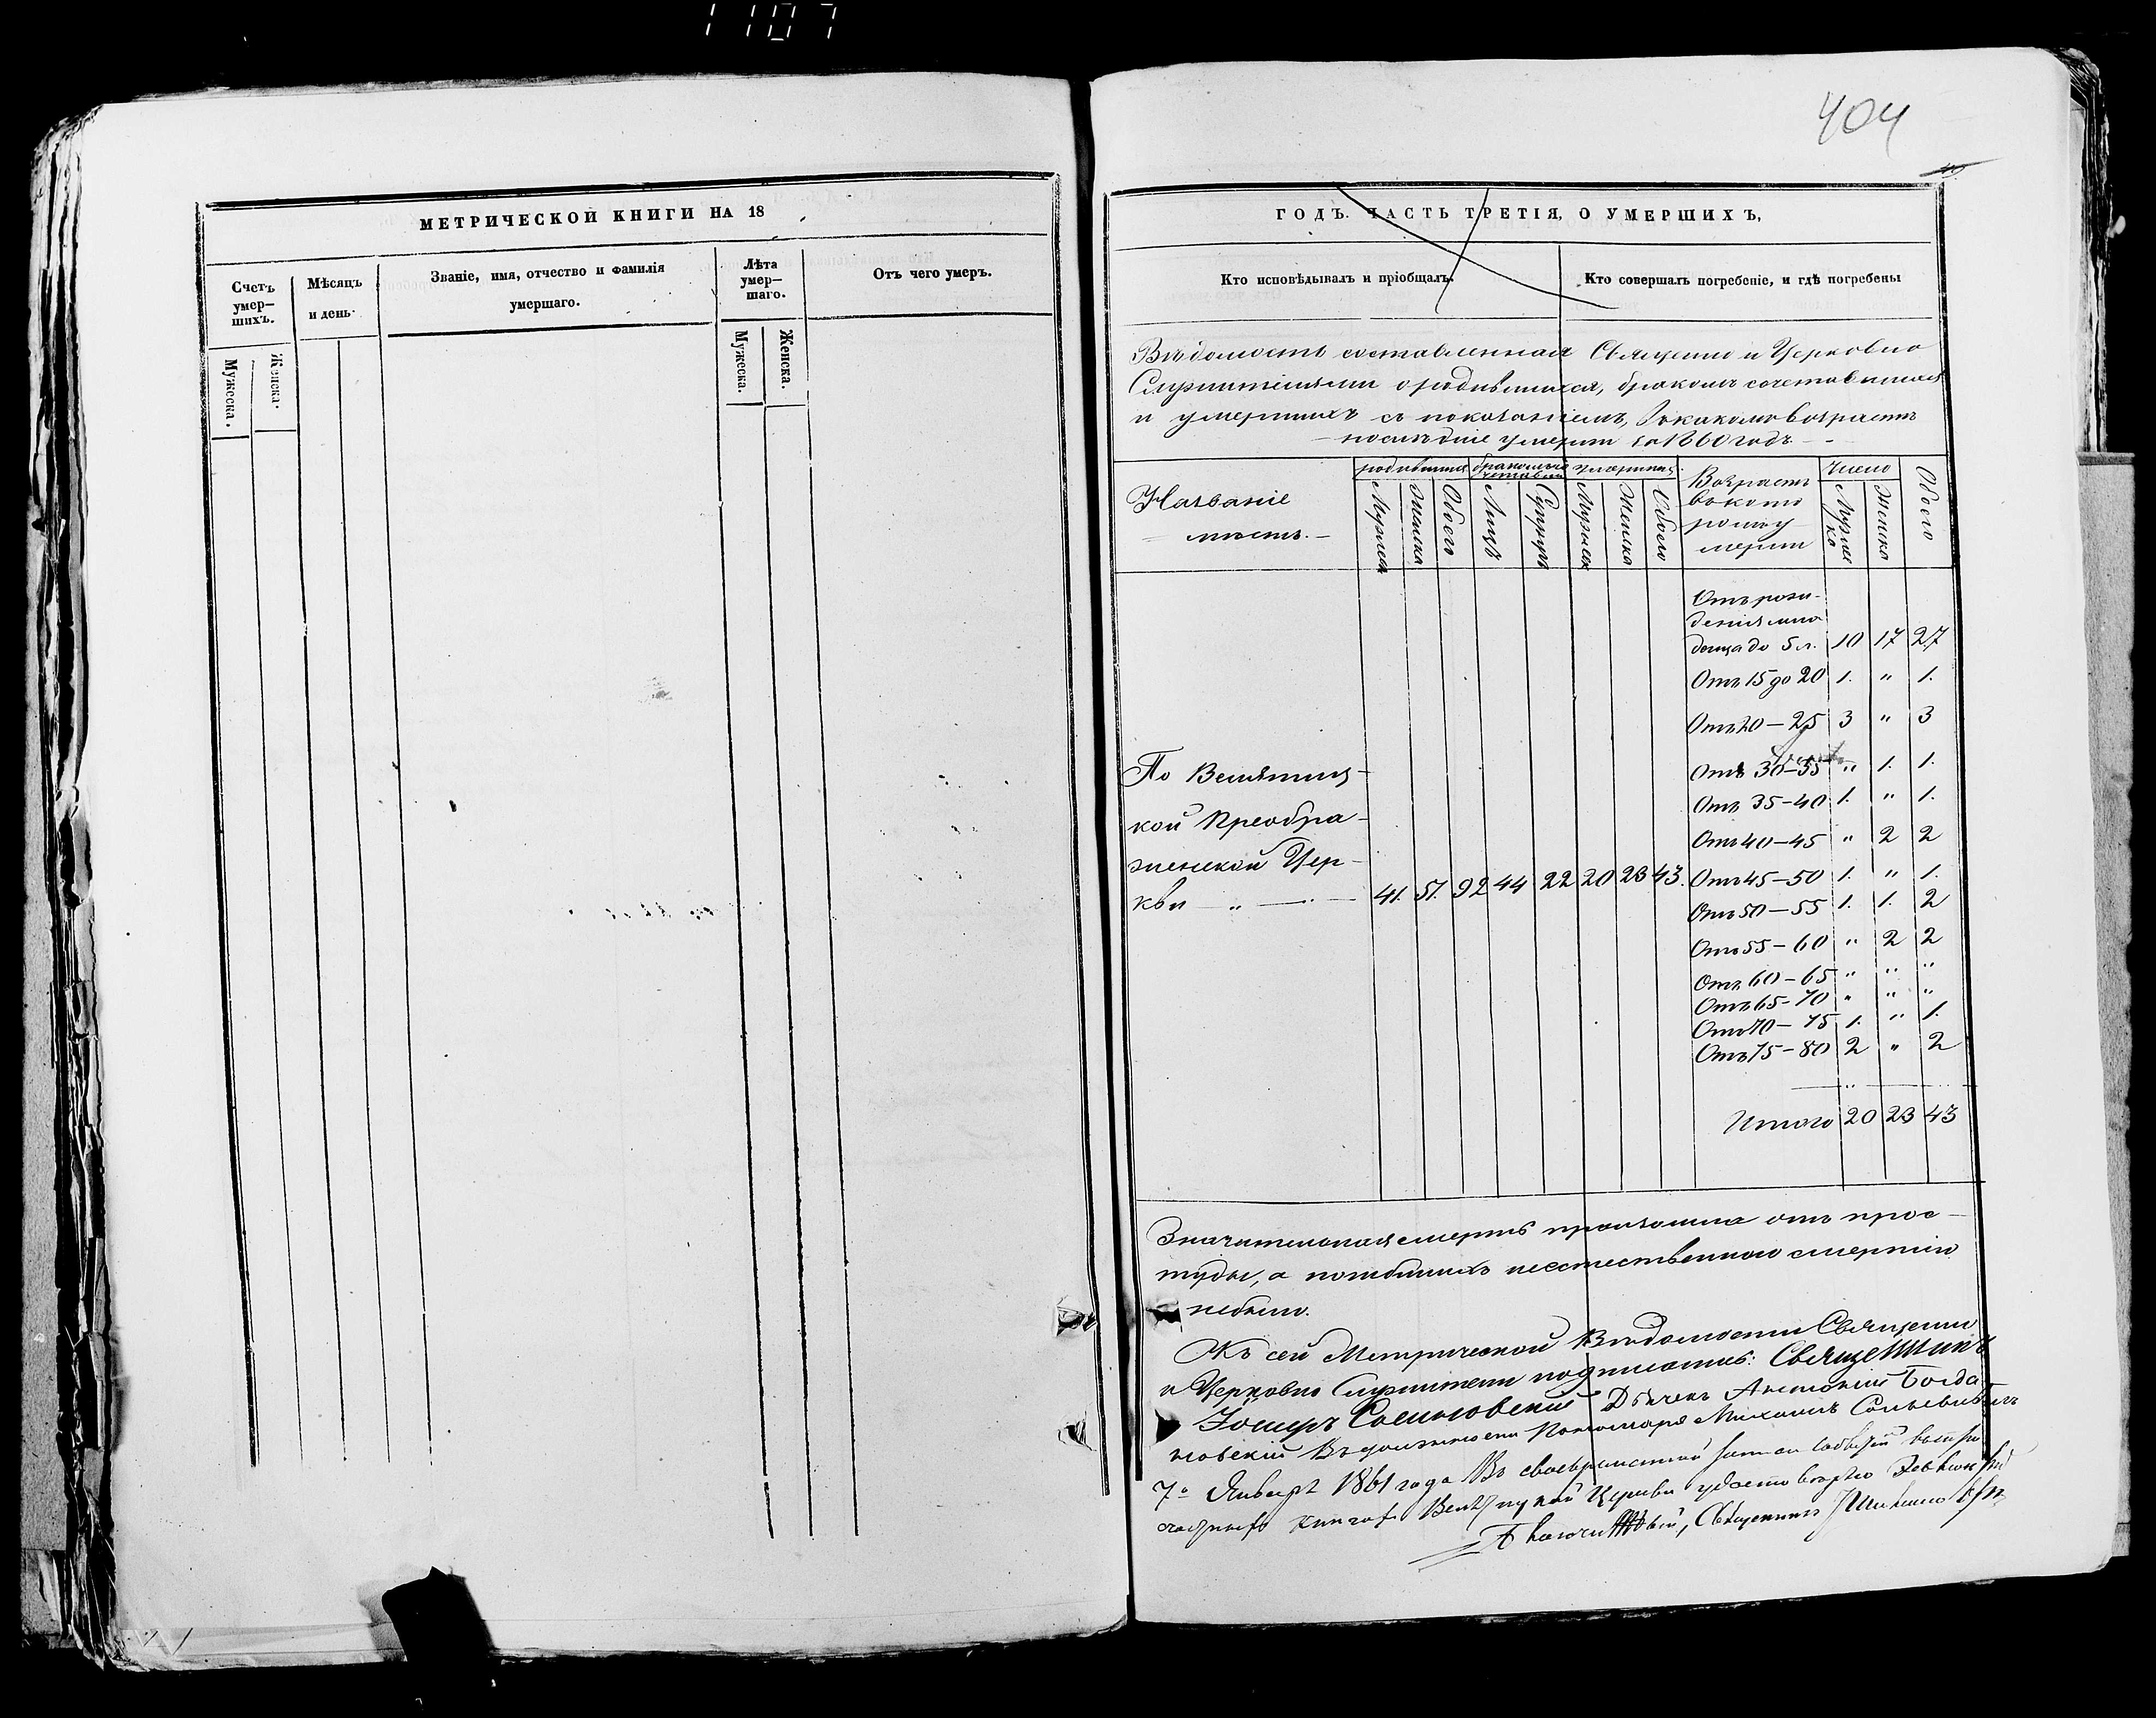 1107
МЕТРИЧЕСКОЙ КНИГИ НА 18
Счетъ умер-шихъ.
Мужеска.
Женска.
Мѣсяцъ и день.
Званіе, имя, отчество и фамилія
умершаго.
Лѣта умер-шаго.
Мужеска.
Женска.
Отъ чего умеръ.
404
ГОДЪ. ЧАСТЬ ТРЕТІЯ, О УМЕРШИХЪ,
Кто исповѣдывалъ и пріобщалъ.
Кто совершалъ погребеніе, и гдѣ погребены
Вѣдомость составленная Священно и Церковно
Служителями о родившихся, бракомъ сочетавшихся
и умершихъ съ показаніемъ, въ какомъ возрастѣ
послѣдніе умерли за 1860 годъ
Названіе мѣстъ.
родившихся
бракомъ
умершихъ
Возрастъ въ кото ромъ у мерли
Число
Мужеска
Женска
Обоего
Лицъ
Супруговъ
Мужеска
Женска
Обоего
Мужес ка
Женска
Обоего
Отъ рож-
денія мла
денца до 5 л. 10 17 27
Отъ 15 до 20 1. " 1.
Отъ 20 – 25 3 " 3
Отъ 30 – 35 " 1. 1.
Отъ 35 – 40 1. " 1.
Отъ 40 – 45 " 2 2
Отъ 45 – 50 1. " 1.
Отъ 50 – 55 1. 1. 2
Отъ 55 – 60 " 2 2
Отъ 60 – 65 " " "
Отъ 65 – 70 " " "
Отъ 70 – 75 1. " 1.
Отъ 75 – 80 2 " 2
Итого 20 23 43
По
кой Преобра-
женской Цер-
кви — " — 41. 51. 92 44 22 20 23 43.
Значительная смерть произошла отъ прос-
туды, а погибшихъ неестественною смертію
небыло.
Къ сей Метрической Вѣдомости Священно
и Церковно Служители подписались: Священникъ
Дьячекъ Антоній Богда-
новскій Въ должности Пономаря Михаилъ
7го Января 1861 года
Церкви
Священникъ